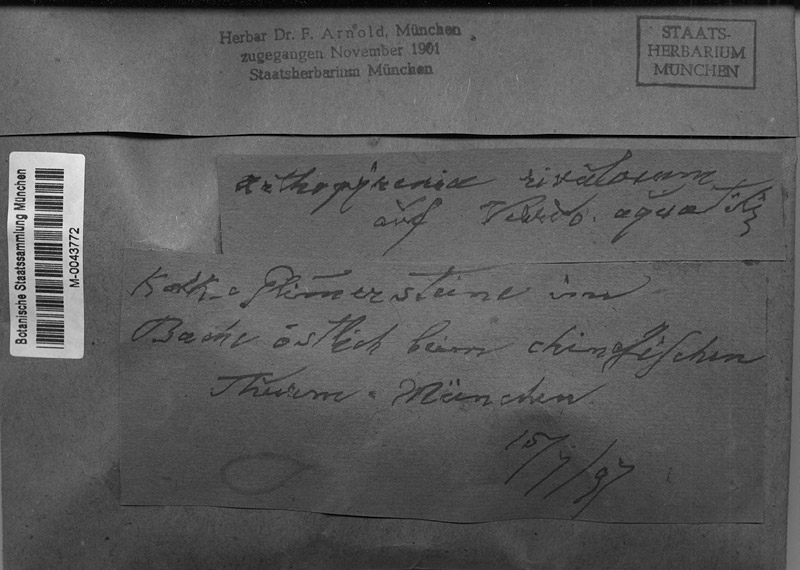 Herbar Dr. F. Arnold, München
zugegangen November 1901
Staatsherbarium München
STAATS-
HERBARIUM
MÜNCHEN
Botanische Staatssammlung München
M-0043772
Arthopyrenia rivulorum
auf Verr. aquatilis
Kalk-Glimmersteine im
Bache östlich beim chinesischen
Thurm - München
15/7/97